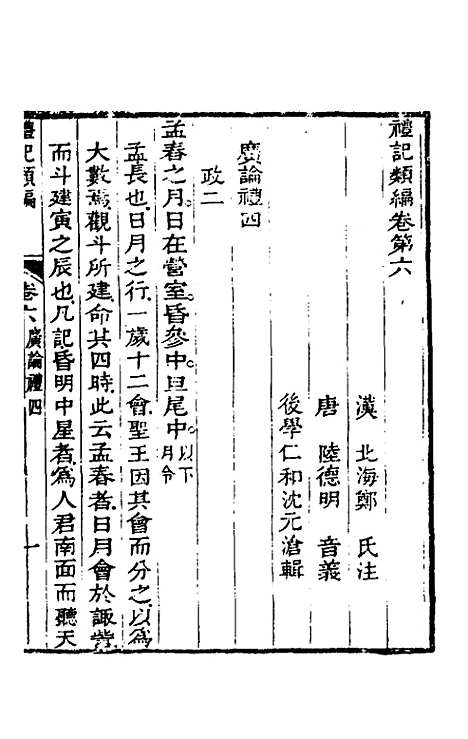 禮記類編卷第六
漢 北海鄭 氏注
唐 陸德明 音義
後學仁和沈元滄輯
廣論禮四
政二
孟春之月日在營室昏參中旦尾中以下月令
孟長也日月之行一歲十二會聖王因其會而分之以為
大數焉觀斗所建命其四時此云孟春者日月會於諏訾
而斗建寅之辰也凡記昏明中星者為人君南面而聽天
禮記類編 卷六 廣論禮四 一